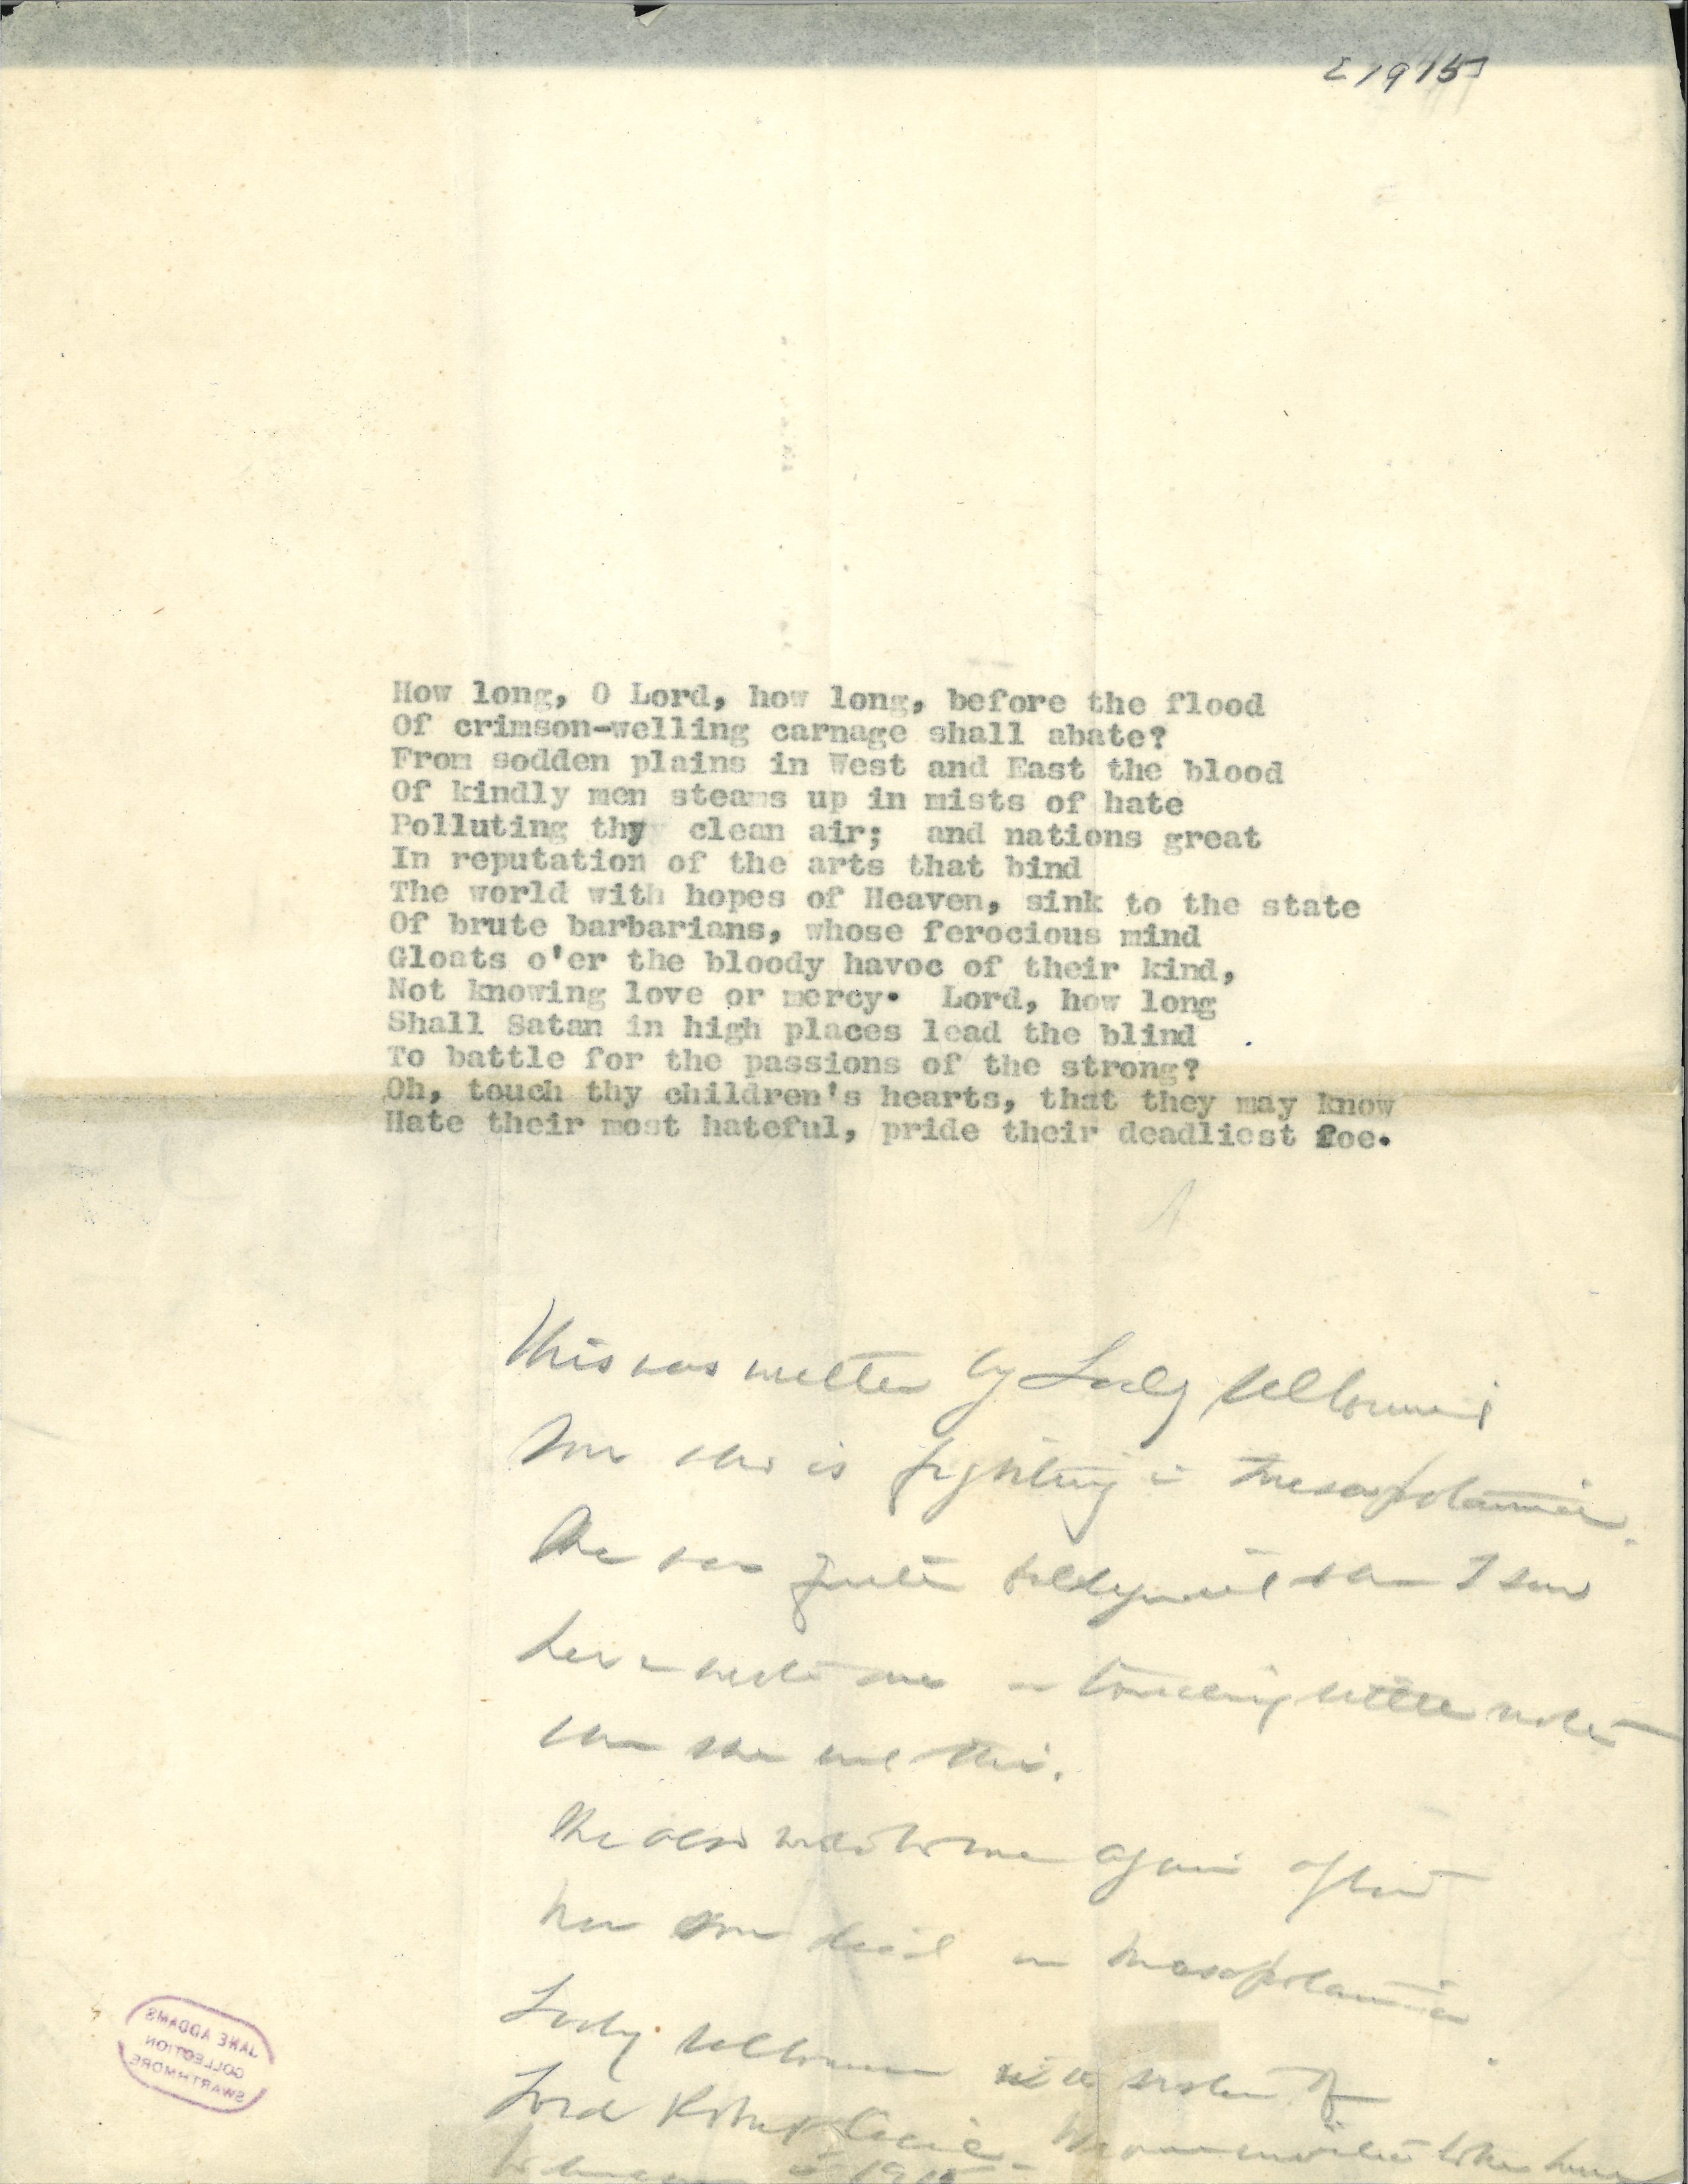 [1915]
How long, O Lord, how long, before the flood
Of crimson-welling carnage shall abate?
From sodden plains in West and East the blood
Of kindly men steams up in mists of hate
Polluting thy clean air; and nations great
In reputation of the arts that bind
The world with hopes of Heaven, sink to the state
Of brute barbarians, whose ferocious mind
Gloats o'er the bloody havoc of their kind,
Not knowing love or mercy. Lord, how long
Shall Satan in high places lead the blind
To battle for the passions of the strong?
Oh, touch thy children's hearts, that they may know
Hate their most hateful, pride their deadliest foe.
This was written by Lady Selbourne's
son who is fighting in Mesopotamia.
She was quite when I saw
her & wrote me a touching little note
when she sent this.
She also wrote to me again after
her son died in Mesopotamia
Lady Selbourne is a sister of
Lord Robert Cecil. We were invited to her house
1915
JANE ADDAMS
COLLECTION
SWARTHMORE